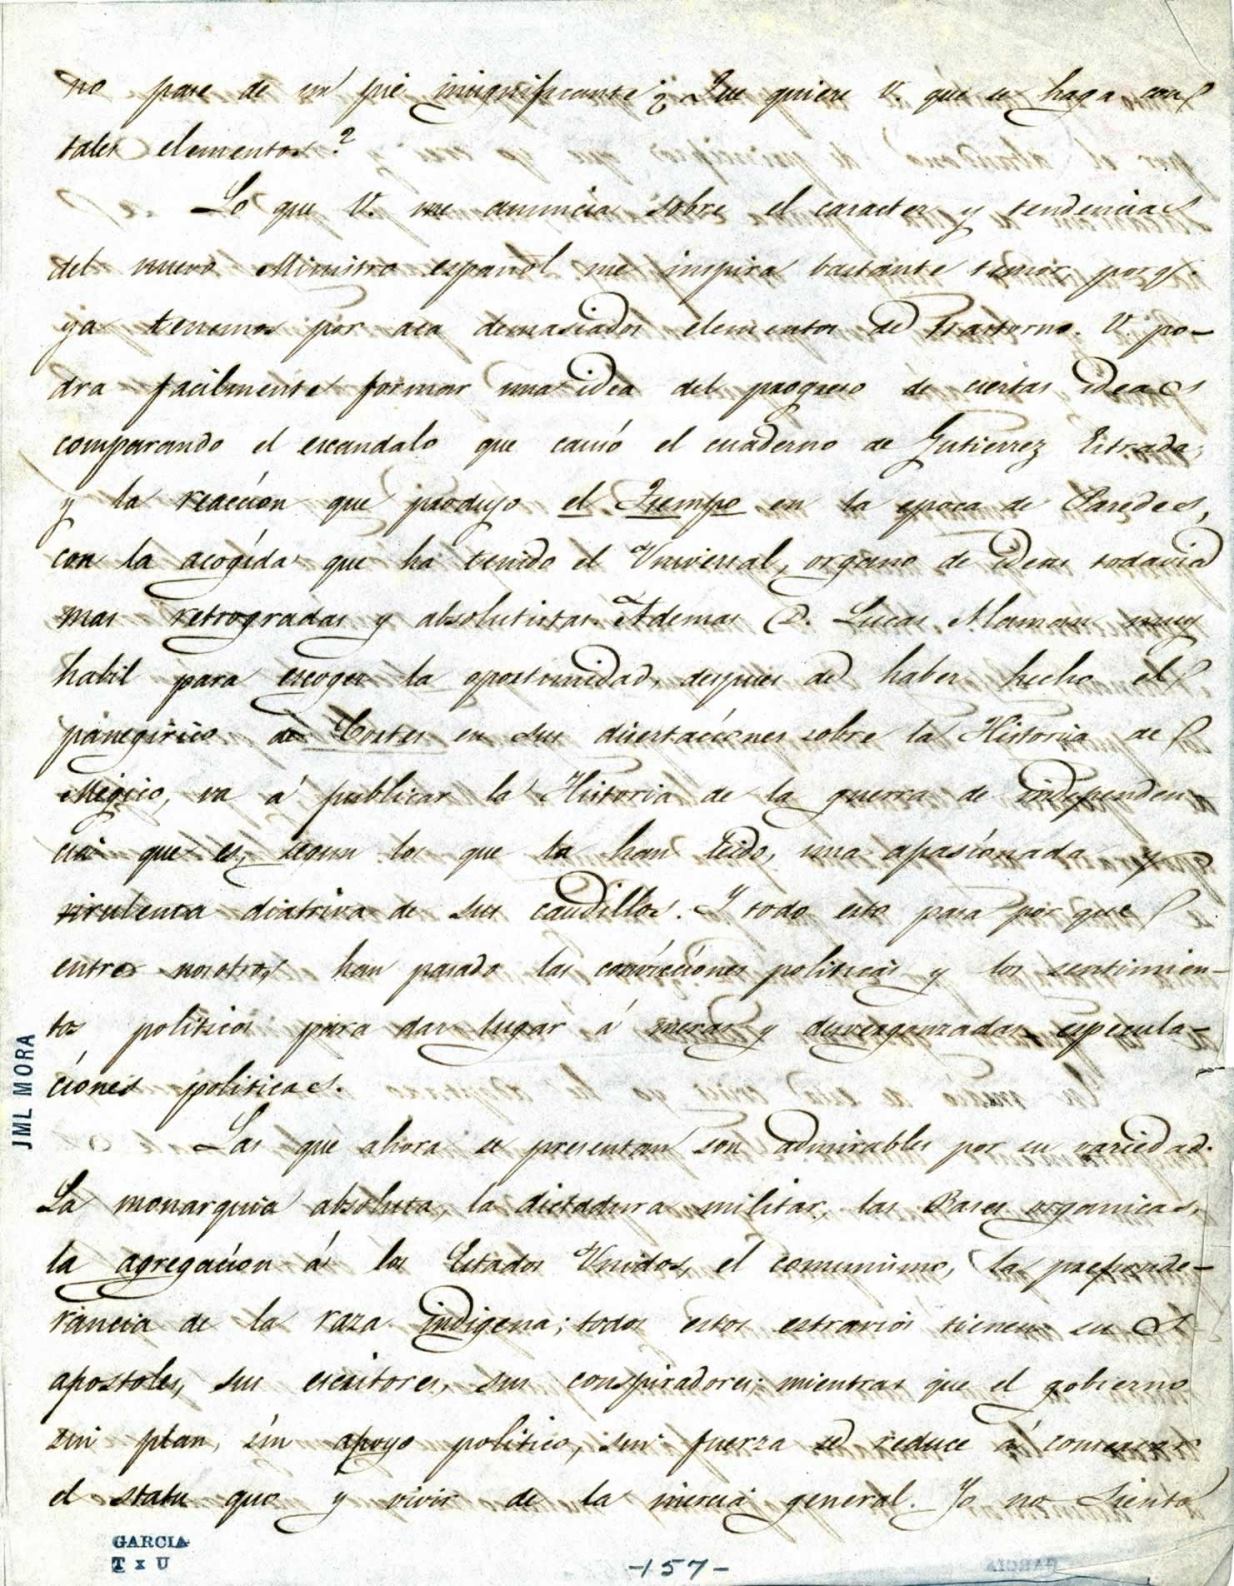 no pase de un pie insignificante ¿Que quiere V. que se haga con
tales elementos?
Lo que V. me anuncia sobre el caracter y tendencias
del nuevo Ministro español me inspira bastante temor, porq.
ya tenemos por aca demasiados elementos de trastorno. V. po-
dra facilmente formar una idea del progreso de ciertas ideas
comparando el escandalo que causó el cuaderno de Gutierrez Estrada,
y la reaccion que produjo el Tiempo en la epoca de Paredes,
con la acogida que ha tenido el Universal, organo de ideas todavia
mas retrogradas y absolutistas. Ademas D. Lucas Alaman muy
habil para escoger la oportunidad, despues de haber hecho el
panegirico de Cortes en sus disertaciones sobre la Historia de
Megico, va á publicar la Historia de la guerra de independen-
cia que es, segun los que la han leido, una apasionada y
virulenta diatriva de sus caudillos. Y todo esto pasa por que
entre nosotros han pasado las convicciones politicas y los sentimien-
tos politicos para dar lugar á meras y desvergonzadas especula-
ciones politicas.
Las que ahora se presentan son admirables por su variedad.
La monarquia absoluta, la dictadura militar, las Bases organicas,
la agregacion á los Estados Unidos, el comunismo, la preponde-
rancia de la raza indigena; todos estos estravios tienen sus
apostoles, sus escritores, sus conspiradores; mientras que el gobierno
sin plan, sin apoyo politico, sin fuerza se reduce á conservar
el statu quo y vivir de la inercia general. Yo no siento
JML MORA
GARCIA
T x U
-157-